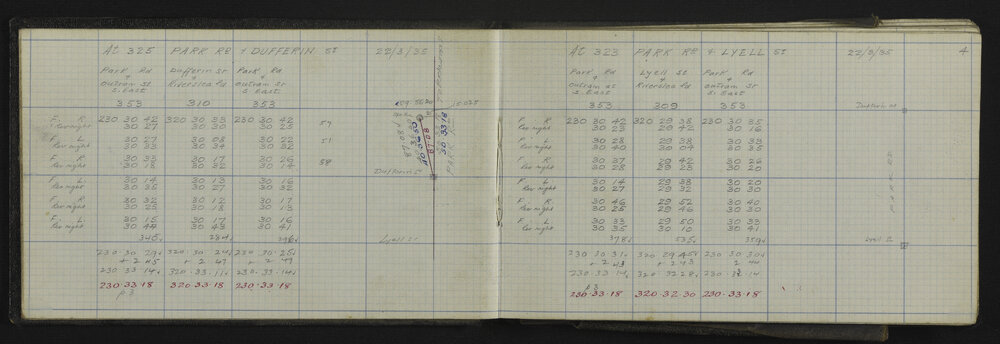 At 325 PARK RD & DUFFERIN ST 22/3/35
Park Rd Dufferin St Park Rd
& & &
Outram St Riverslea Rd Outram St
S. East S. East
353 310 353
F. R 230 30 42 320 30 33 230 30 42
Rev night 30 27 30 30 30 25
F. L 30 08 30 22
Rev night 30 33 30 34 30 32
F. R 30 33 30 17 30 26
Rev night 30 18 30 32 30 14
F. L 30 14 30 13 30 16
Rev night 30 35 30 27 30 32
F. R 30 32 30 12 30 17
Rev night 30 23 30 18 30 13
F. L 30 15 30 17 30 16
Rev night 30 44 30 43 30 41
57
58
Dufferin St
Lyell St
87.08
30 33 18
PARK RD
230 · 33 · 14 320 · 33 · 11 230 · 33 · 14
230 · 33 · 18 320 · 33 · 18 230 · 33 · 18
p 3
At 323 PARK RD & LYELL ST 22/3/35 4
Park Rd Lyell St Park Rd
& & &
Outram St Riverslea Rd Outram St
S. East S. East
353 309 353
F. R 230 30 42 320 29 38 230 30 35
Rev night 30 23 29 42 30 16
F. L 30 28 29 38 30 33
Rev night 30 40 30 04 30 35
F. R 30 37 29 42 30 26
Rev night 30 28 29 23 30 20
F. L 30 14 29 38 30 20
Rev night 30 27 29 32 30 30
F. R 30 46 29 52 30 40
Rev night 30 25 29 46 30 30
F. L 30 33 29 50 30 33
Rev night 30 35 30 10 30 41
378 535 359
Dufferin St
PARK RD
Lyell St
+ 2 43 + 2 43 2 44
230 · 33 · 14 320 32 28 230 · 33 · 14
p 3
230 · 33 · 18 320 · 32 · 30 230 · 33 · 18